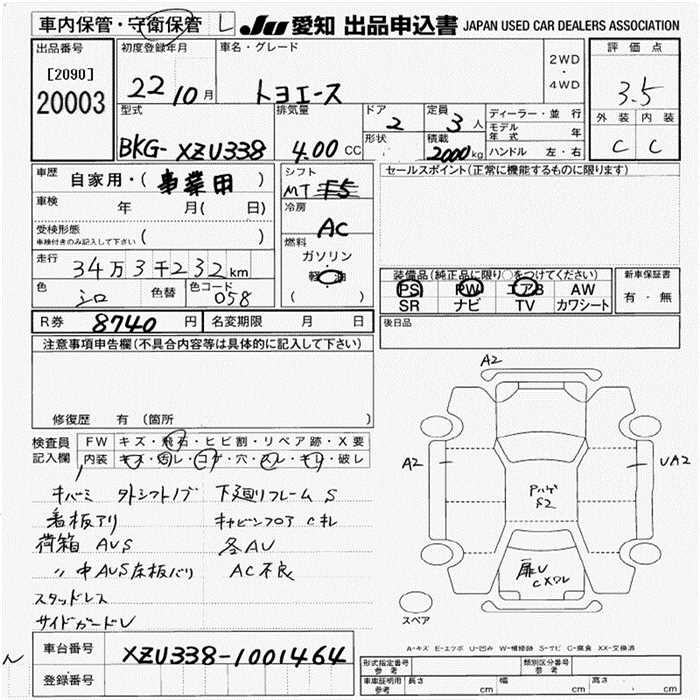 車内保管・守衛保管 JU 愛知 出品申込書 JAPAN USED CAR DEALERS ASSOCIATION
出品番号 初度登録年月 車名・グレード 2WD・4WD 評価点
[2090] 22 10月 トヨエース 3.5
20003
型式 排気量 ドア 定員 ディーラー・並行 外装 内装
2 3人 モデル年式 年
BKG-XZU338 4.00CC 形状 積載 2000kg ハンドル 左・右 C C
車歴 自家用・(事業用) シフト MT F5 セールスポイント(正常に機能するものに限ります)
車検 年 月( 日) 冷房 AC
受検形態 車検付きのみ記入して下さい ( ) 燃料 ガソリン・軽油 ( )
走行 34万3千232km 装備品(純正品に限り○をつけてください) 新車保証書
色 シロ 色替 色コード 058 PS PW エアB AW 有・無
SR ナビ TV カワシート
R券 8740円 名変期限 月 日 後日品
注意事項申告欄(不具合内容等は具体的に記入して下さい)
修復歴 有 (箇所 )
検査員記入欄 FW キズ・飛石・ヒビ割・リペア跡・X要
内装 キズ・汚レ・コゲ・穴・スレ・キレ・破レ
キバミ 外シフトノブ 下廻りフレームS
看板アリ キャビンフロア Cキレ
荷箱 AUS 各AU
〃中AUS床板バリ AC不良
スタッドレス
サイドガードU
A2
A2 UA2
Pハゲ
S2
扉U
スペア
A-キズ E-エクボ U-凹み W-補修跡 S-サビ C-腐食 XX-交換済
車台番号 XZU338-1001464
登録番号
形式指定番号 参考 類別区分番号 参考
車庫証明用 参考 長さ cm 幅 cm 高さ cm